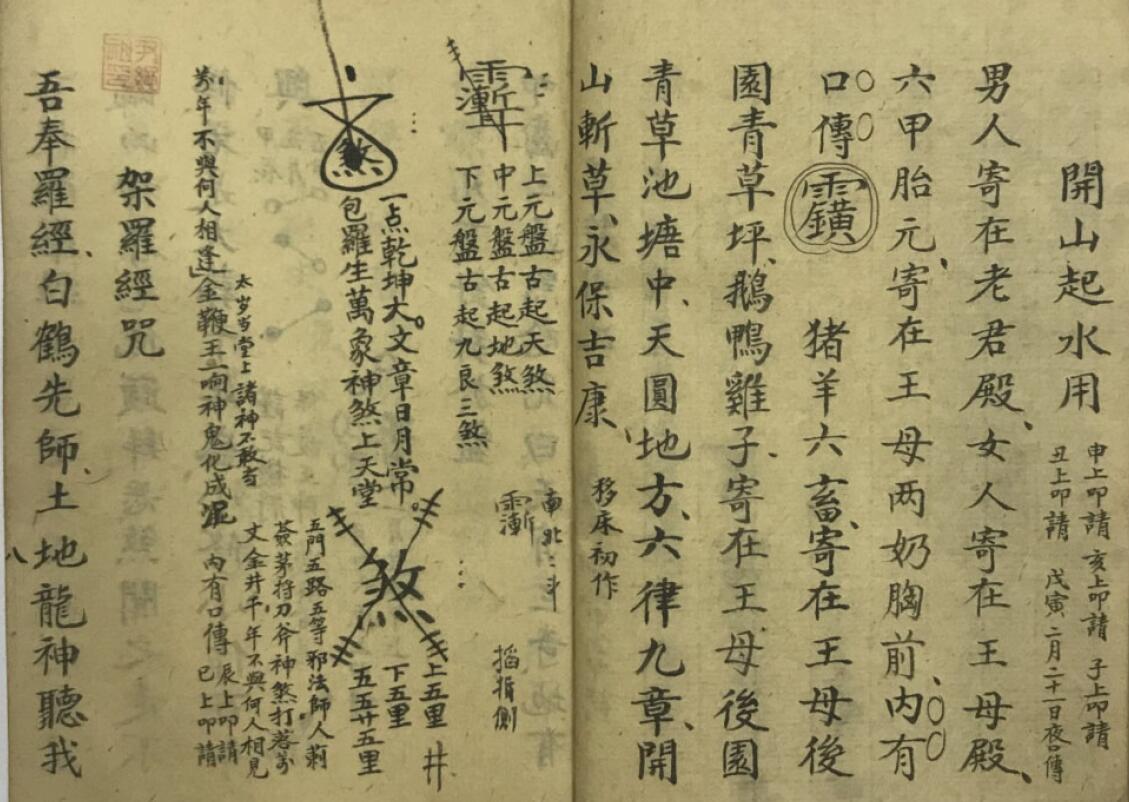 開山起水用
申上叩請 亥上叩請 子上叩請
丑上叩請 戊寅二月二十日夜口傳
男人寄在老君殿、女人寄在王母殿、
六甲胎元、寄在王母两奶胸前、内有
口傳 猪羊六畜、寄在王母後
園青草坪、鵝鴨雞子、寄在王母後園
青草池塘中、天圓地方、六律九章、開
山斬草、永保吉康、 移床初作
上元盤古起天煞
中元盤古起地煞
下元盤古起九良三煞
南北二斗
搯指側
一点乾坤大。文章日月常。
包羅生萬象神煞上天堂
煞
煞
上五里
下五里
五五廿五里
井
五門五路五等邪法師人
茅将刀斧神煞打
文金井千年不與何人相見
内有口傳 辰上叩請
巳上叩請
太岁当堂上諸神不敢当
年不與何人相逢金鞭王一响神鬼化成泥
架羅經咒
吾奉羅經、白鶴先師、土地龍神聽我
八